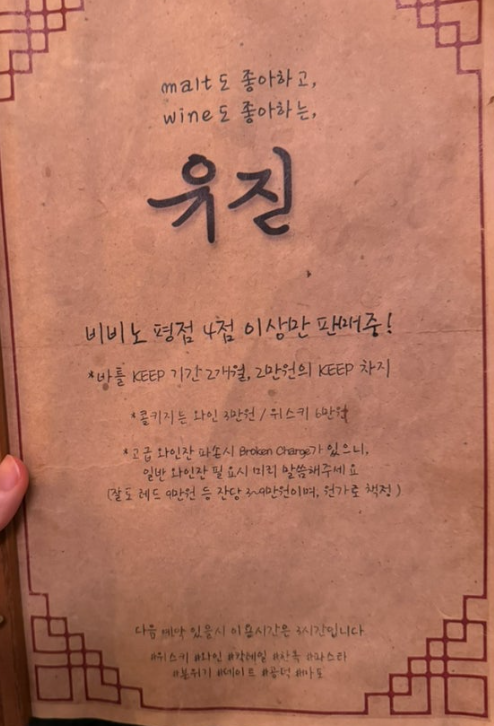 malt도 좋아하고,
wine도 좋아하는,
유진
비비노 평점 4점 이상만 판매중!
*바틀 KEEP 기간 2개월, 2만원의 KEEP 차지
*콜키지는 와인 3만원 / 위스키 6만원
*고급 와인잔 파손시 Broken Charge가 있으니,
일반 와인잔 필요시 미리 말씀해주세요
(잘토 레드 9만원 등 잔당 3~9만원이며, 원가로 책정)
다음 예약 있을시 이용시간은 3시간입니다
#위스키 #와인 #칵테일 #안주 #파스타
#분위기 #데이트 #공덕 #마포